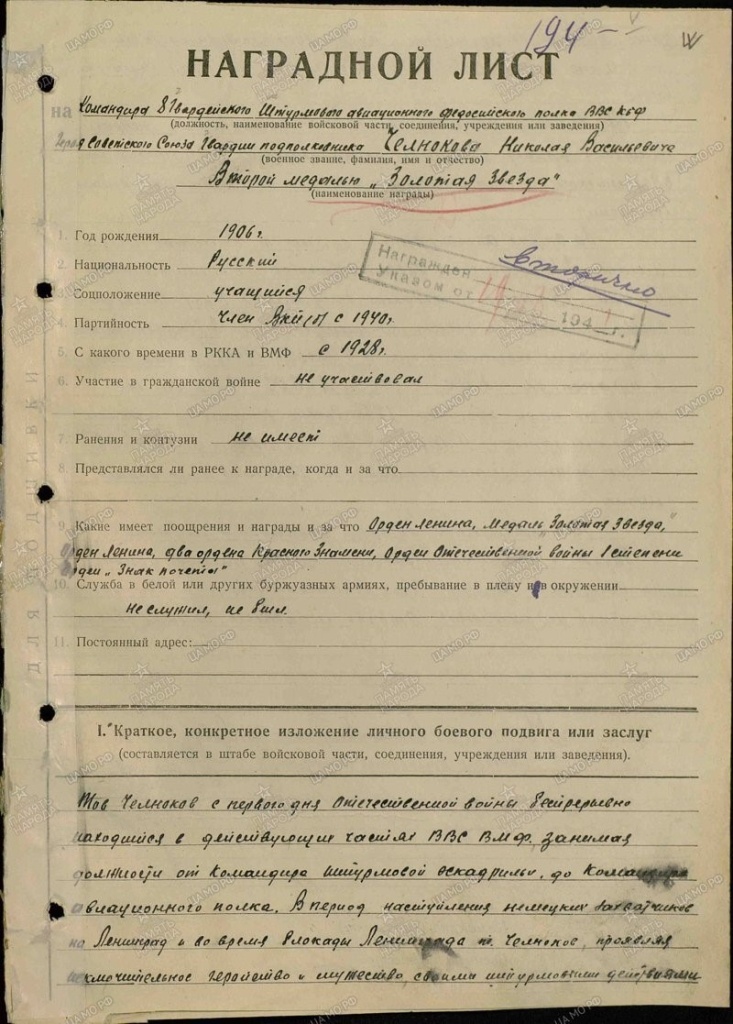 194
НАГРАДНОЙ ЛИСТ
на Командира 8 Гвардейского Штурмового авиационного Феодосийского полка ВВС КБФ
(должность, наименование войсковой части, соединения, учреждения или заведения)
Героя Советского Союза Гвардии подполковника Челнокова Николая Васильевича
(военное звание, фамилия, имя и отчество)
Второй медалью „Золотая Звезда"
(наименование награды)
1. Год рождения 1906 г.
2. Национальность Русский
Награжден вторично
3. Соцположение учащийся
Указом от 194 г.
4. Партийность член ВКП(б) с 1940 г.
5. С какого времени в РККА и ВМФ с 1928 г.
6. Участие в гражданской войне не участвовал
7. Ранения и контузии не имеет
8. Представлялся ли ранее к награде, когда и за что
9. Какие имеет поощрения и награды и за что Орден Ленина, Медаль „Золотая Звезда",
орден Ленина, два ордена Красного Знамени, Орден Отечественной войны I степени
орден „Знак почета"
10. Служба в белой или других буржуазных армиях, пребывание в плену и в окружении
не служил, не был.
11. Постоянный адрес:
ДЛЯ ПОДШИВКИ
I. Краткое, конкретное изложение личного боевого подвига или заслуг
(составляется в штабе войсковой части, соединения, учреждения или заведения).
Тов Челноков с первого дня Отечественной войны беспрерывно
находится в действующих частях ВВС ВМФ, занимая
должности от командира штурмовой эскадрильи, до командира
авиационного полка. В период наступления немецких захватчиков
на Ленинград и во время блокады Ленинграда т. Челноков, проявляя
исключительное геройство и мужество, своими штурмовыми действиями
ПАМЯТЬ НАРОДА
ЦАМО.РФ